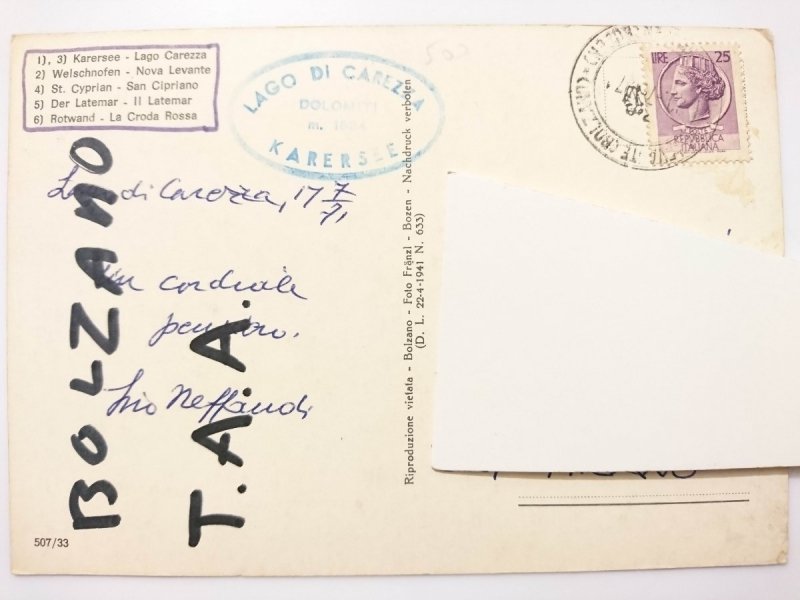 1), 3) Karersee - Lago Carezza
2) Welschnofen - Nova Levante
4) St. Cyprian - San Cipriano
5) Der Latemar - Il Latemar
6) Rotwand - La Croda Rossa
LAGO DI CAREZZA
DOLOMITI
KARERSEE
LIRE 25
REPVBBLICA
ITALIANA
Lago di Carezza, 17 7/71
un cordiale
pensiero.
BOLZANO
T.A.A.
Riproduzione vietata - Bolzano - Foto Fränzl - Bozen - Nachdruck verboten
(D. L. 22-4-1941 N. 633)
507/33